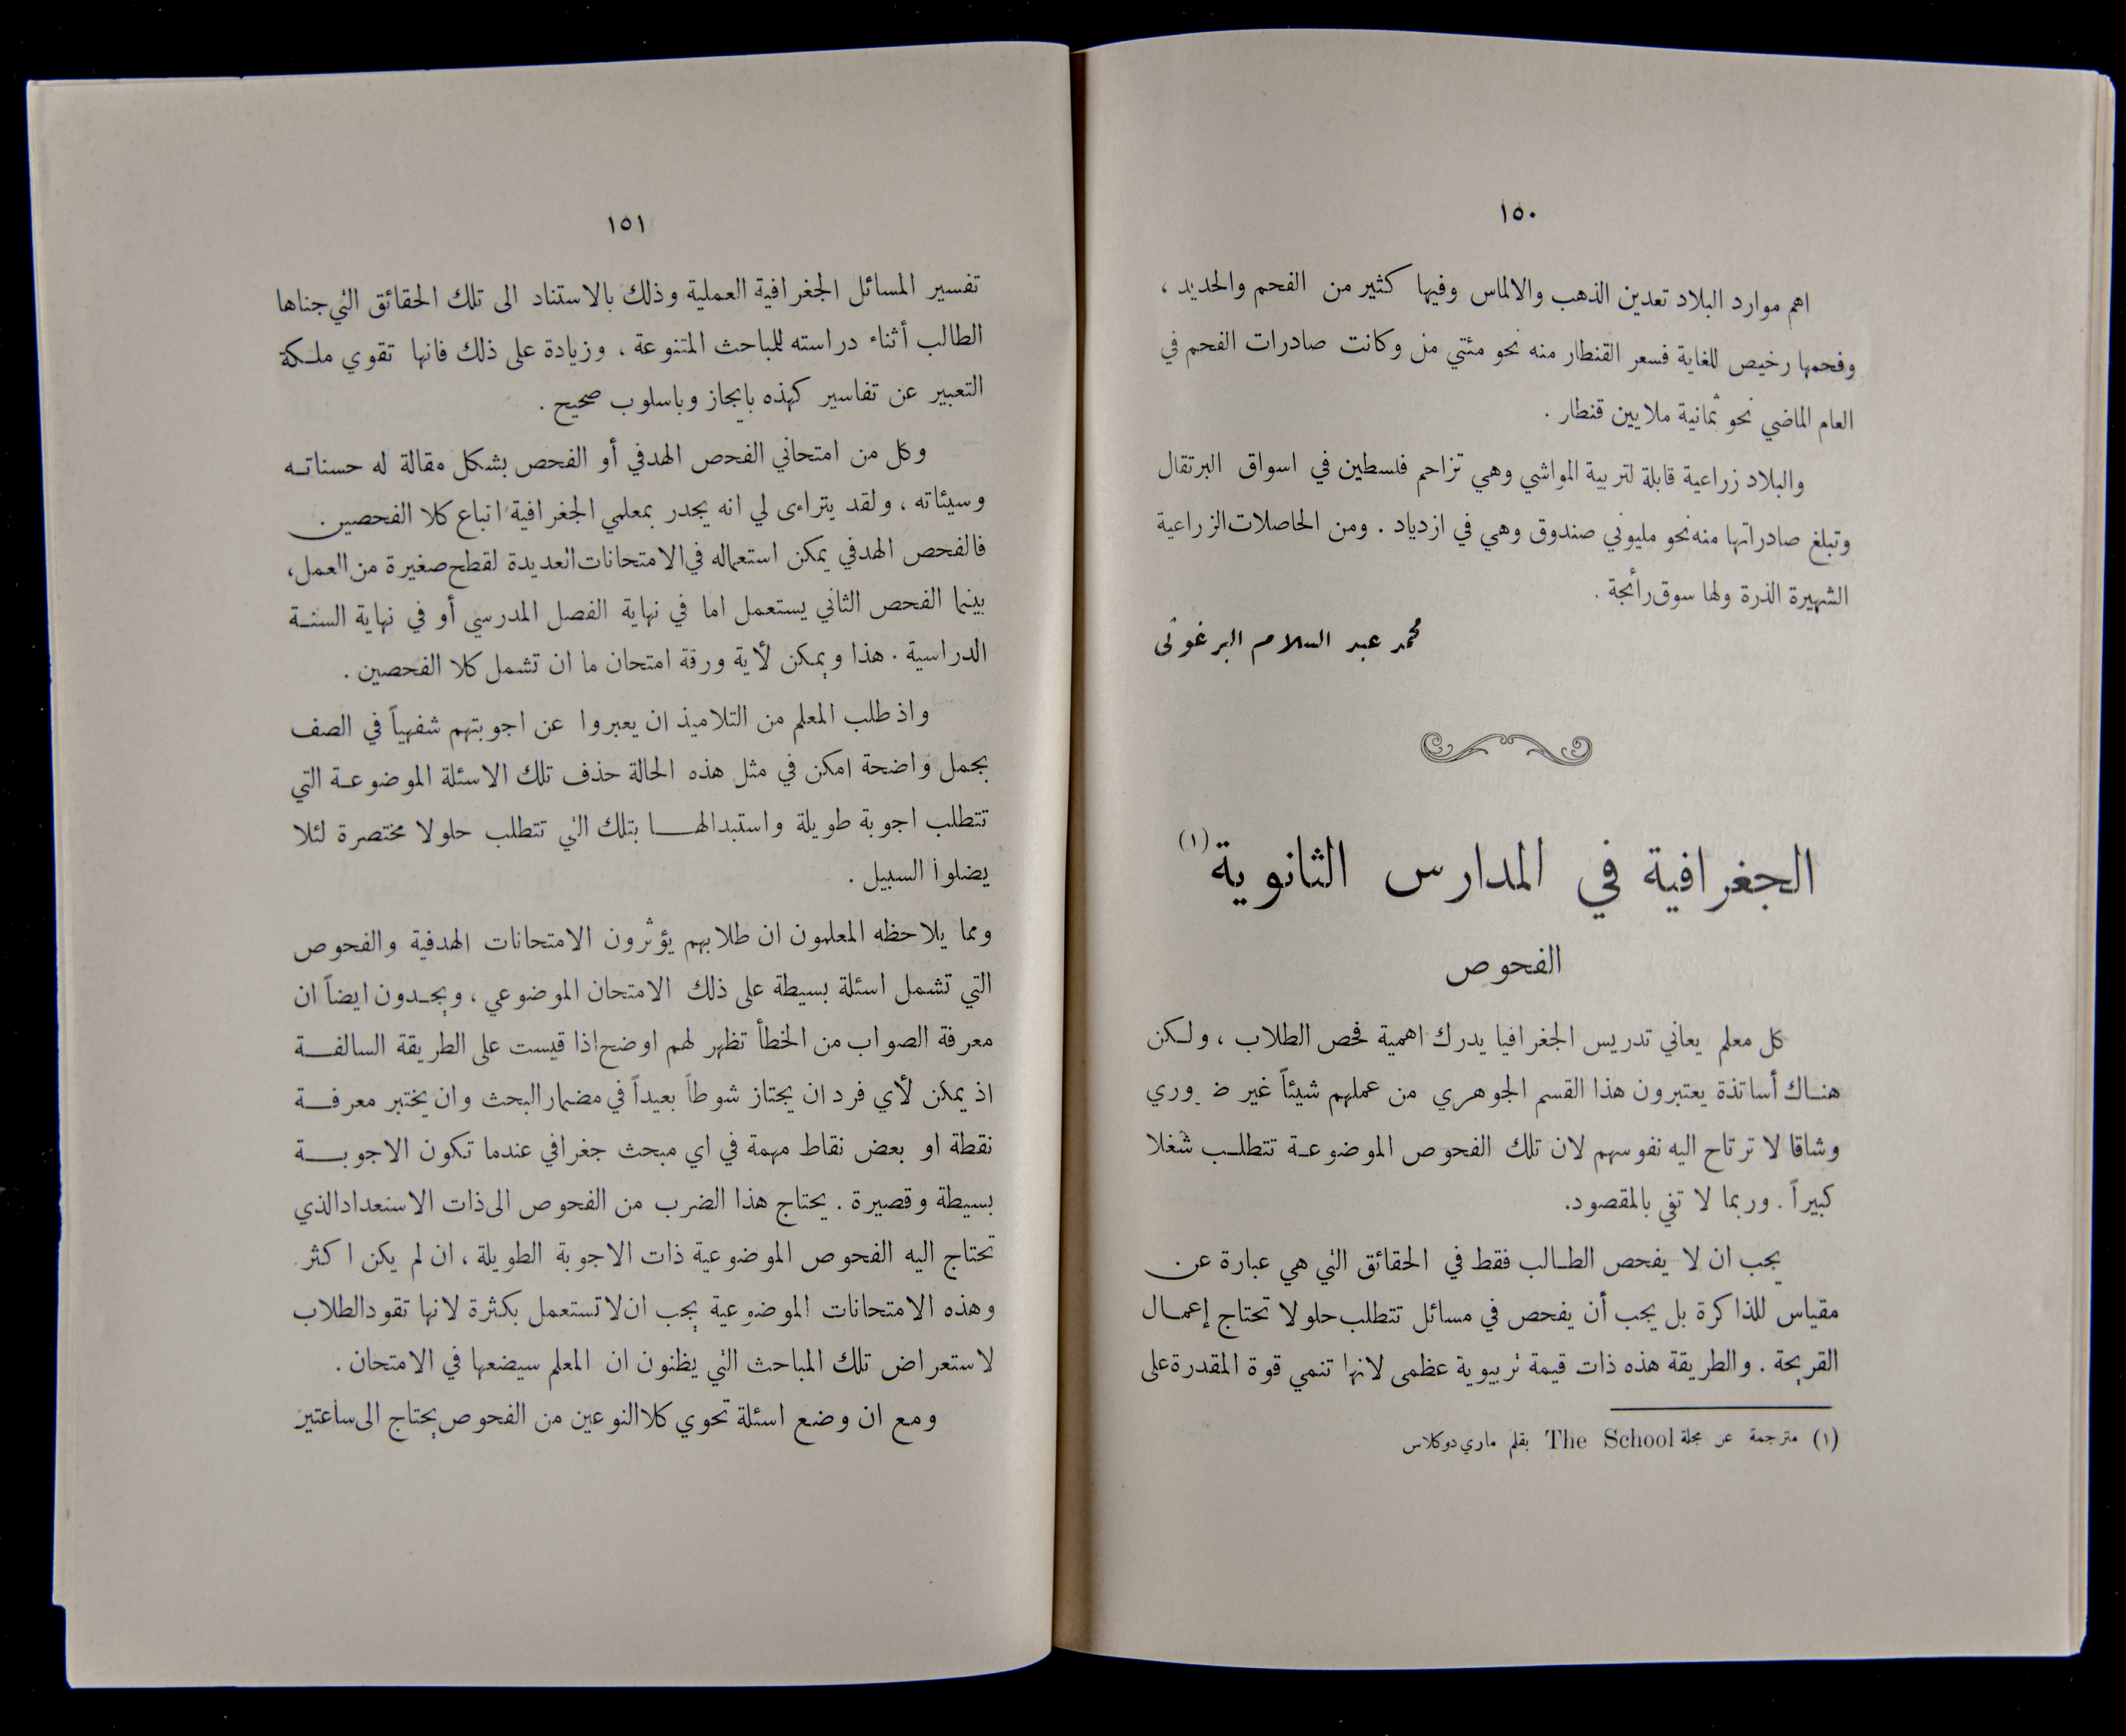 ١٥٠
اهم موارد البلاد تعدين الذهب والالماس وفيها كثير من الفحم والحديد ،
وفحمها رخيص للغاية فسعر القنطار منه نحو مئتي مل وكانت صادرات الفحم في
العام الماضي نحو ثمانية ملايين قنطار .
والبلاد زراعية قابلة لتربية المواشي وهي تزاحم فلسطين في اسواق البرتقال
وتبلغ صادراتها منه نحو مليوني صندوق وهي في ازدياد . ومن الحاصلات الزراعية
الشهيرة الذرة ولها سوق رائجة .
محمد عبد السلام البرغوثي
الجغرافية في المدارس الثانوية (١)
الفحوص
كل معلم يعاني تدريس الجغرافيا يدرك اهمية فحص الطلاب ، ولكن
هناك أساتذة يعتبرون هذا القسم الجوهري من عملهم شيئاً غير ضروري
وشاقا لا ترتاح اليه نفوسهم لان تلك الفحوص الموضوعة تتطلب شغلا
كبيراً . وربما لا تفي بالمقصود.
يجب ان لا يفحص الطالب فقط في الحقائق التي هي عبارة عن
مقياس للذاكرة بل يجب أن يفحص في مسائل تتطلب حلولا تحتاج إعمال
القريحة . والطريقة هذه ذات قيمة تربيوية عظمى لانها تنمي قوة المقدرة على
(١) مترجمة عن مجلة The School بقلم ماري دوكلاس
١٥١
تفسير المسائل الجغرافية العملية وذلك بالاستناد الى تلك الحقائق التي جناها
الطالب أثناء دراسته للمباحث المتنوعة ، وزيادة على ذلك فانها تقوي ملكة
التعبير عن تفاسير كهذه بايجاز وباسلوب صحيح .
وكل من امتحاني الفحص الهدفي أو الفحص بشكل مقالة له حسناته
وسيئاته ، ولقد يتراءى لي انه يجدر بمعلمي الجغرافية اتباع كلا الفحصين .
فالفحص الهدفي يمكن استعماله في الامتحانات العديدة لقطع صغيرة من العمل ،
بينما الفحص الثاني يستعمل اما في نهاية الفصل المدرسي أو في نهاية السنة
الدراسية . هذا ويمكن لأية ورقة امتحان ما ان تشمل كلا الفحصين .
واذ طلب المعلم من التلاميذ ان يعبروا عن اجوبتهم شفهياً في الصف
بجمل واضحة امكن في مثل هذه الحالة حذف تلك الاسئلة الموضوعة التي
تتطلب اجوبة طويلة واستبدالها بتلك التي تتطلب حلولا مختصرة لئلا
يضلوا السبيل .
ومما يلاحظه المعلمون ان طلابهم يؤثرون الامتحانات الهدفية والفحوص
التي تشمل اسئلة بسيطة على ذلك الامتحان الموضوعي ، ويجدون ايضاً ان
معرفة الصواب من الخطأ تظهر لهم اوضح اذا قيست على الطريقة السالفة
اذ يمكن لأي فرد ان يجتاز شوطاً بعيداً في مضمار البحث وان يختبر معرفة
نقطة او بعض نقاط مهمة في اي مبحث جغرافي عندما تكون الاجوبة
بسيطة وقصيرة . يحتاج هذا الضرب من الفحوص الى ذات الاستعداد الذي
تحتاج اليه الفحوص الموضوعية ذات الاجوبة الطويلة ، ان لم يكن اكثر .
وهذه الامتحانات الموضوعية يجب ان لا تستعمل بكثرة لانها تقود الطلاب
لاستعراض تلك المباحث التي يظنون ان المعلم سيضعها في الامتحان .
ومع ان وضع اسئلة تحوي كلا النوعين من الفحوص يحتاج الى ساعتين